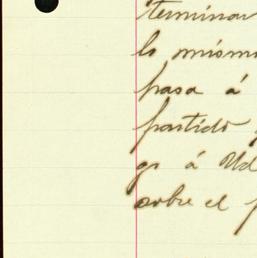 terminar
lo mismo
pasa á
partido
go á Ud
sobre el